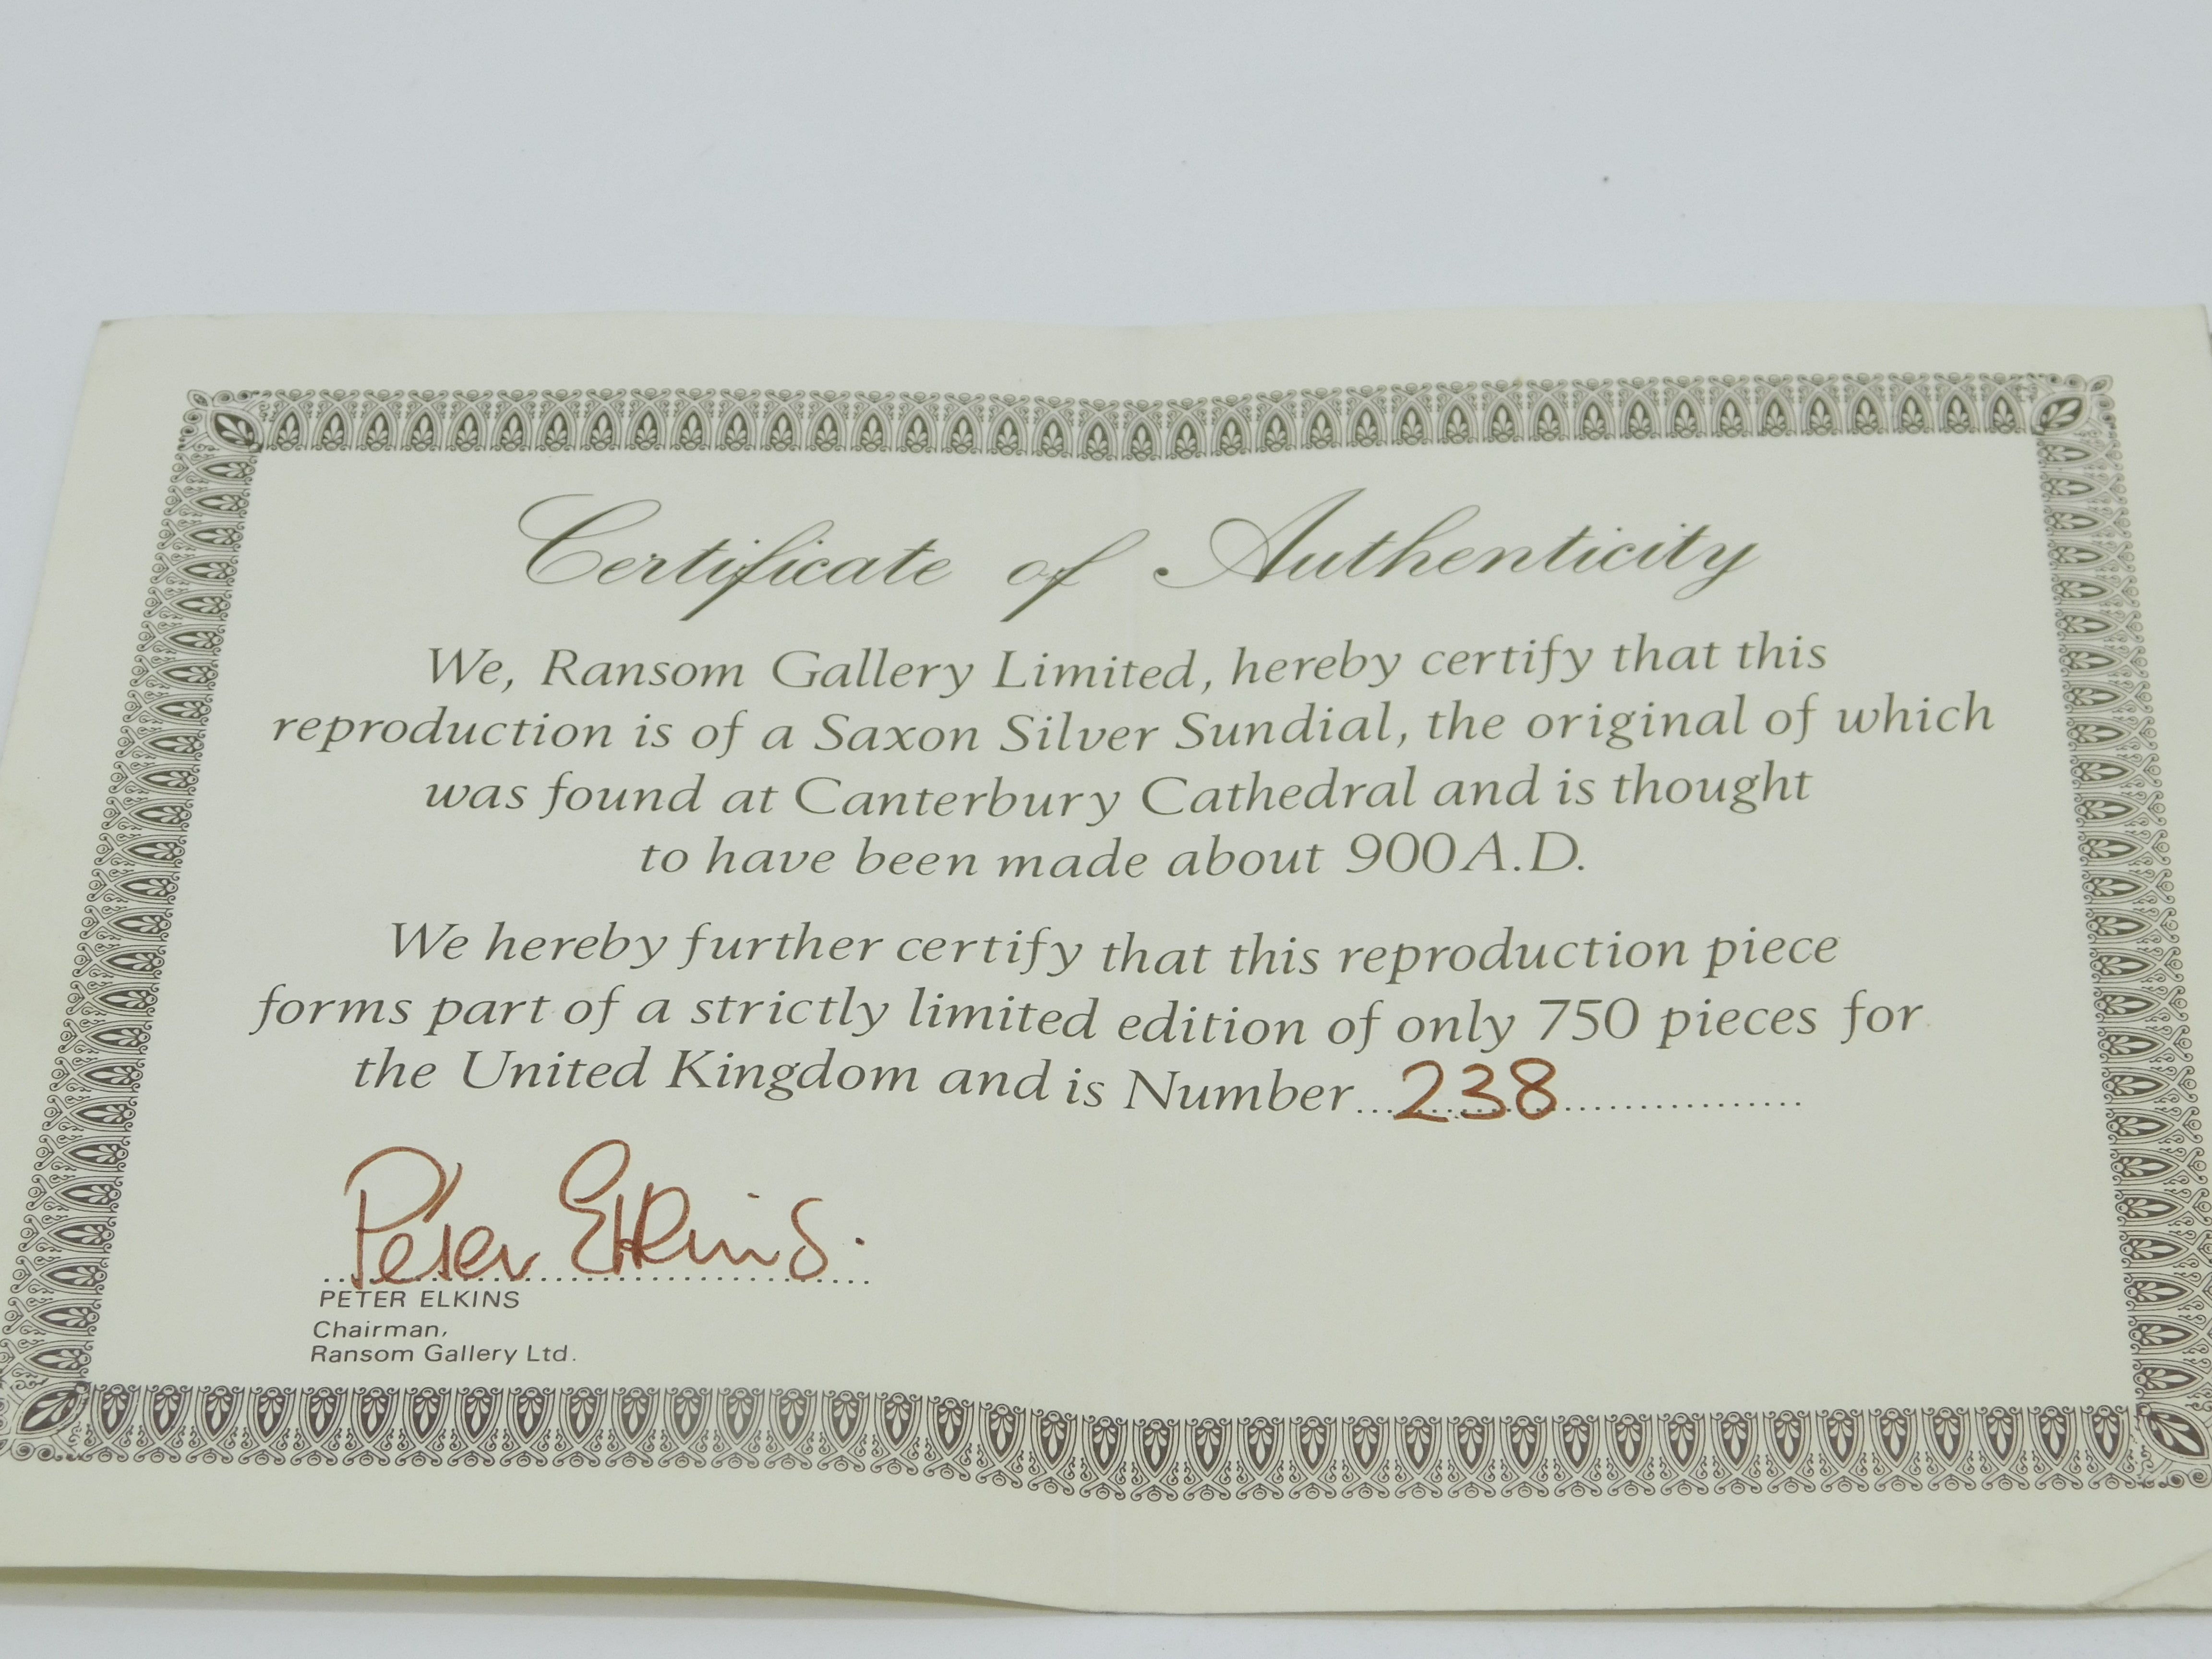 Certificate of Authenticity
We, Ransom Gallery Limited, hereby certify that this
reproduction is of a Saxon Silver Sundial, the original of which
was found at Canterbury Cathedral and is thought
to have been made about 900 A.D.
We hereby further certify that this reproduction piece
forms part of a strictly limited edition of only 750 pieces for
the United Kingdom and is Number 238
Peter Elkins.
PETER ELKINS
Chairman,
Ransom Gallery Ltd.